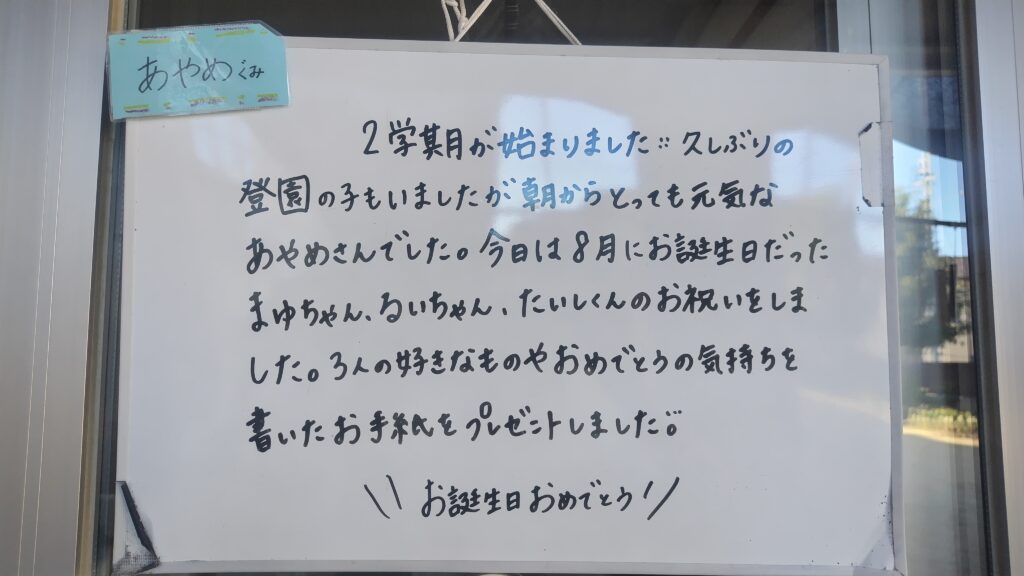 あやめぐみ
2学期が始まりました¨ 久しぶりの
登園の子もいましたが朝からとっても元気な
あやめさんでした。今日は8月にお誕生日だった
まゆちゃん、るいちゃん、たいしくんのお祝いをしま
した。3人の好きなものやおめでとうの気持ちを
書いたお手紙をプレゼントしました¨
\\ お誕生日おめでとう //